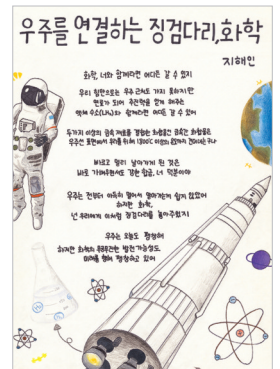 우주를 연결하는 징검다리, 화학
지해인
화학, 너와 함께라면 어디든 갈 수 있지
우리 힘만으로는 우주 근처도 가지 못하지만
연료가 되어 추진력을 갖게 해주는
액체 수소(H₂)와 함께라면 어디든 갈 수 있어
두가지 이상의 금속 재료를 결합한 화합물인 금속간 화합물은
우주선 표면에서 우리를 위해 1800℃ 이상의 온도까지 견뎌내는구나
빠르고 멀리 날아가게 된 것은
바로 가벼우면서도 강한 합금, 너 덕분이야
우주는 전부터 아득히 멀어서 멀어지는게 쉽지 않았어
하지만 화학,
넌 우리에게 이처럼 징검다리를 놓아주었지
우주는 오늘도 팽창해
하지만 화학의 무궁무진한 발전 가능성도
미래를 향해 팽창하고 있어